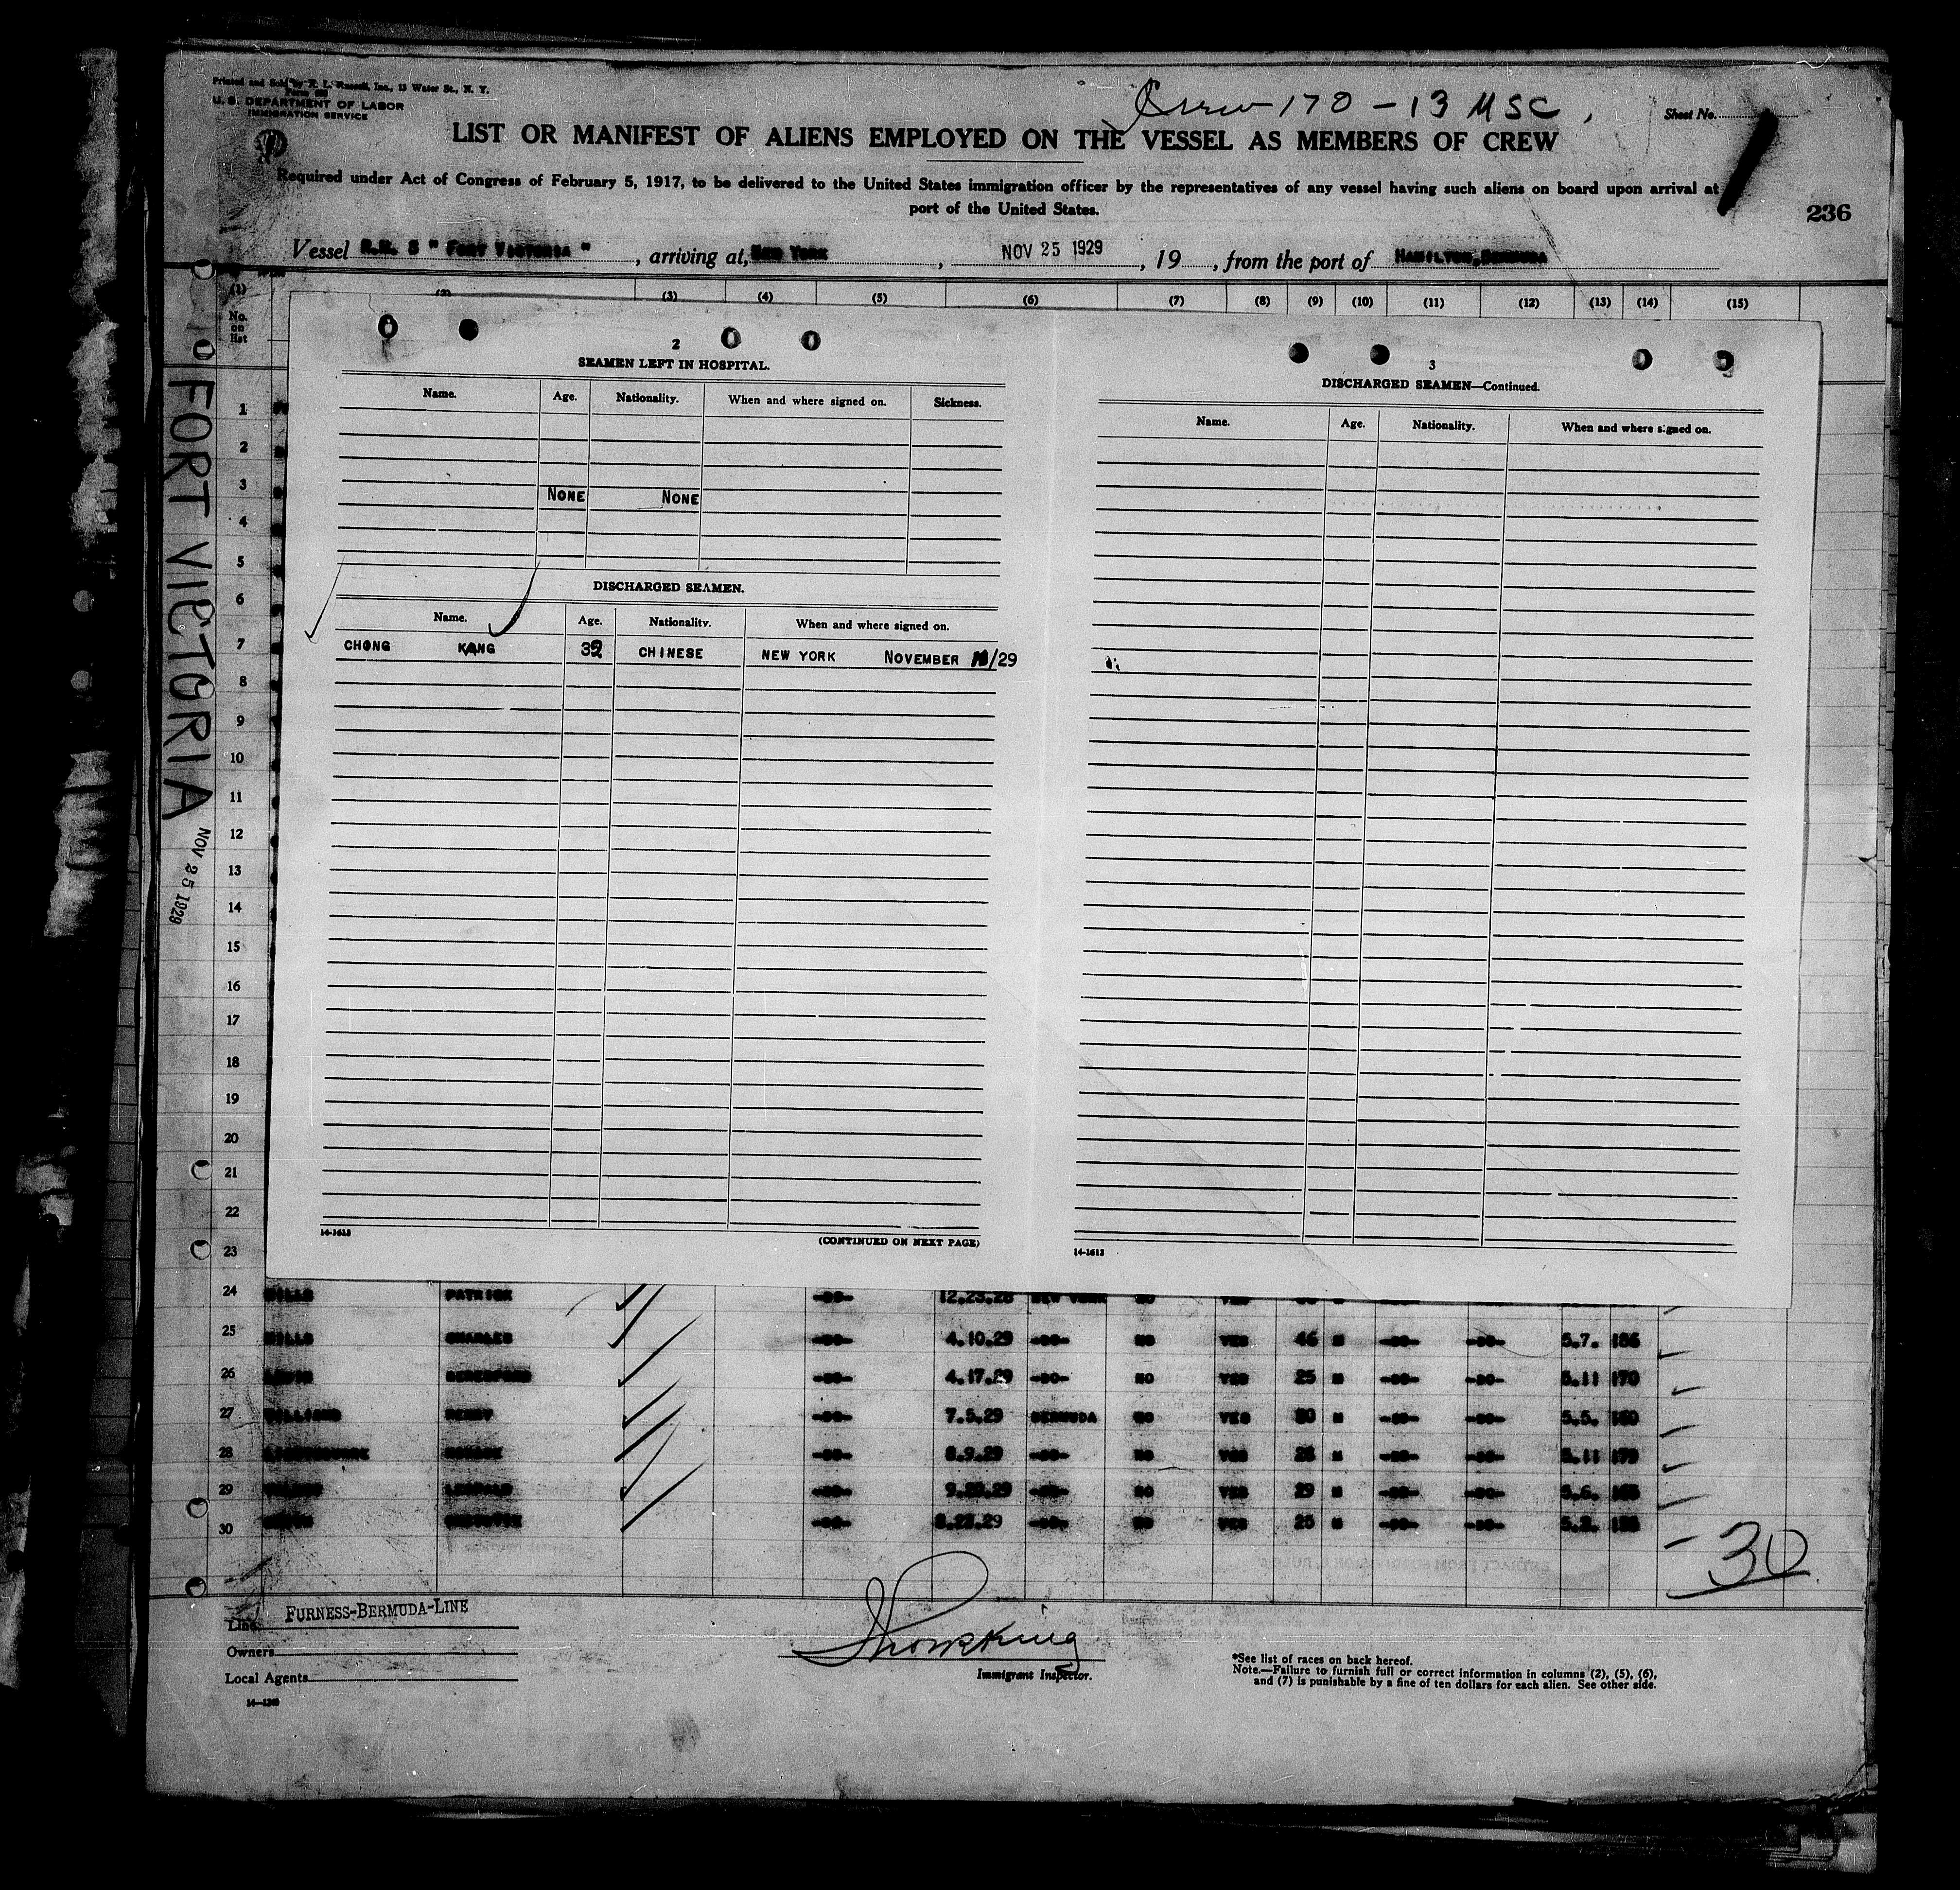 Printed and Sold by R. L. Russell, Inc., 13 Water St., N. Y.
U. S. DEPARTMENT OF LABOR
IMMIGRATION SERVICE
Crew 170 - 13 USC.
Sheet No.
1
LIST OR MANIFEST OF ALIENS EMPLOYED ON THE VESSEL AS MEMBERS OF CREW
Required under Act of Congress of February 5, 1917, to be delivered to the United States immigration officer by the representatives of any vessel having such aliens on board upon arrival at
port of the United States.
236
Vessel "FORT VICTORIA", arriving at, NEW YORK, NOV 25 1929, 19, from the port of HAMILTON, BERMUDA
(1) (2) (3) (4) (5) (6) (7) (8) (9) (10) (11) (12) (13) (14) (15)
No.
on
list
FORT VICTORIA
NOV 25 1929
2
SEAMEN LEFT IN HOSPITAL.
Name. Age. Nationality. When and where signed on. Sickness.
NONE NONE
DISCHARGED SEAMEN.
Name. Age. Nationality. When and where signed on.
CHONG KANG 32 CHINESE NEW YORK NOVEMBER /29
14-1613
(CONTINUED ON NEXT PAGE)
3
DISCHARGED SEAMEN—Continued.
Name. Age. Nationality. When and where signed on.
14-1613
1
2
3
4
5
6
7
8
9
10
11
12
13
14
15
16
17
18
19
20
21
22
23
24 PATRICK -DO- NEW YORK NO
25 CHARLES -DO- 4.10.29 -DO- NO YES 46 M -DO- -DO- 5.7. 186
26 BERESFORD -DO- 4.17.29 -DO- NO YES 25 M -DO- -DO- 5.11 170
27 HENRY -DO- 7.5.29 BERMUDA NO YES M -DO- -DO- 5.5.
28 -DO- 8.9.29 -DO- NO YES M -DO- -DO- 5.11
29 LEOPOLD -DO- -DO- NO YES 29 M -DO- -DO- 5.6.
30 -DO- -DO- NO YES 25 M -DO- -DO-
30
Line FURNESS-BERMUDA-LINE
Owners
Local Agents
Immigrant Inspector.
*See list of races on back hereof.
Note.—Failure to furnish full or correct information in columns (2), (5), (6),
and (7) is punishable by a fine of ten dollars for each alien. See other side.